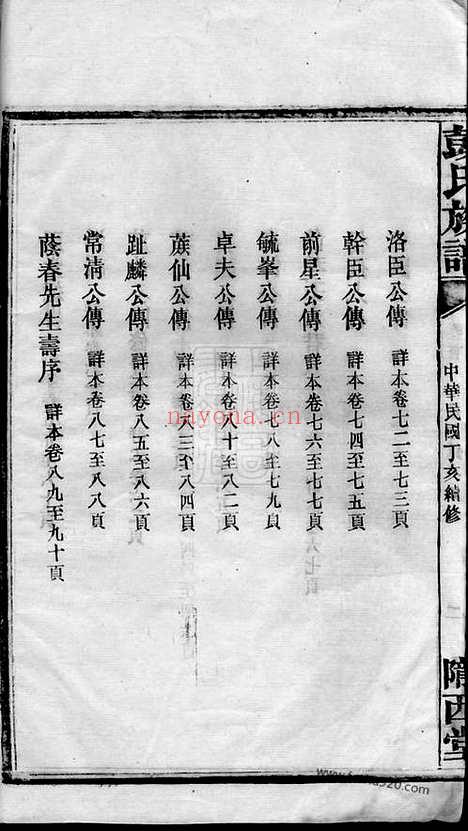 彭氏族譜
中華民國丁亥續修
二
隴西堂
洛臣公傳 詳本卷七二至七三頁
幹臣公傳 詳本卷七四至七五頁
前星公傳 詳本卷七六至七七頁
毓峯公傳 詳本卷七八至七九頁
卓夫公傳 詳本卷八十至八二頁
蔟仙公傳 詳本卷八三至八四頁
趾麟公傳 詳本卷八五至八六頁
常清公傳 詳本卷八七至八八頁
蔭春先生壽序 詳本卷八九至九十頁
nayona.cn